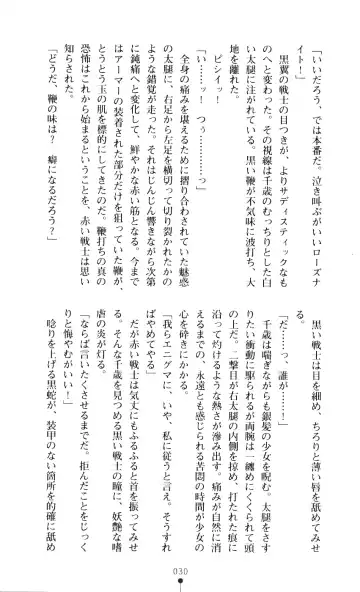 「いいだろう、では本番だ。泣き叫ぶがいいローズナ
イト！」
　黒翼の戦士の目つきが、よりサディスティックなも
のへと変わる。その視線は千歳のむっちりとした白
い太腿に注がれている。黒い鞭が不気味に波打ち、大
地を離れた。
　ピシイッ！
「い……ッ！　つぅ…………っ」
　全身の痛みを堪えるために摺り合わされていた魅惑
の太腿に、右足から左足を横切って切り裂かれたかの
ような錯覚が走った。それはじんじん響きながら次第
に鈍痛へと変化して、鮮やかな赤い筋となる。今まで
はアーマーの装着された部分だけを狙っていた鞭が、
とうとう玉の肌を標的にしてきたのだ。鞭打ちの真の
恐怖はこれから始まるということを、赤い戦士は思い
知らされた。
「どうだ、鞭の味は？　癖になるだろう？」
　黒い戦士は目を細め、ちろりと薄い唇を舐めてみせ
る。
「だ……っ、誰が……！」
　千歳は喘ぎながらも銀髪の少女を睨む。太腿をさす
りたい衝動に駆られるが両腕は一纏めにくくられて頭
の上だ。二撃目が右太腿の内側を掠め、打たれた痕に
沿って灼けるような熱さが滲み出す。痛みが自然に消
えるまでの、永遠とも感じられる苦悶の時間が少女の
心を苛にかかる。
「我らエニグマに、いや、私に従うと言え。そうすれ
ばやめてやる」
　だが赤い戦士は気丈にもふるふると首を振ってみせ
る。そんな千歳を見つめる黒い戦士の瞳に、妖艶な嗜
虐の炎が灯る。
「ならば言いたくさせるまでだ。拒んだことをじっく
りと悔やむがいい！」
　唸りを上げる黒蛇が、装甲のない箇所を的確に舐め
030